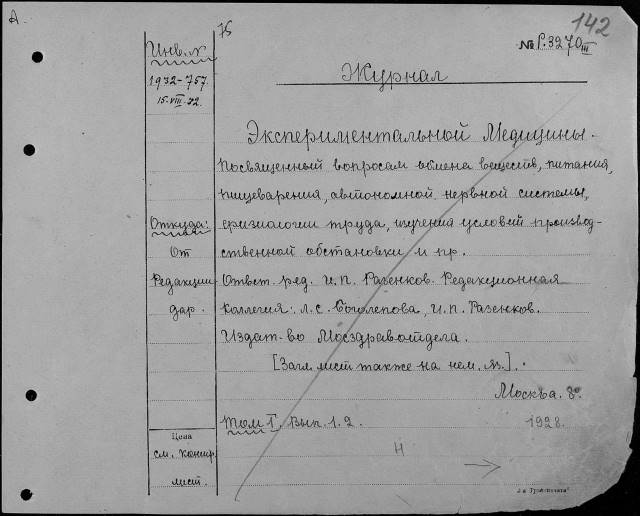 А.
75
142
№ Р.3270 III
Инв. №
1932-757.
15.VIII.32.
Журнал
Экспериментальной Медицины.
Посвященный вопросам обмена веществ, питания,
пищеварения, автономной нервной системы,
физиологии труда, изучения условий производ-
ственной обстановки и пр.
Откуда:
От
Редакции
дар.
Ответ. ред. И.П. Разенков. Редакционная
коллегия: Л.С. Боголепова, И.П. Разенков.
Издат-во Мосздравотдела.
[Загл. лист также на нем. яз.].
Москва. 8º.
Том I. Вып. 1. 2. 1928.
Н
Цена
см. контр.
лист.